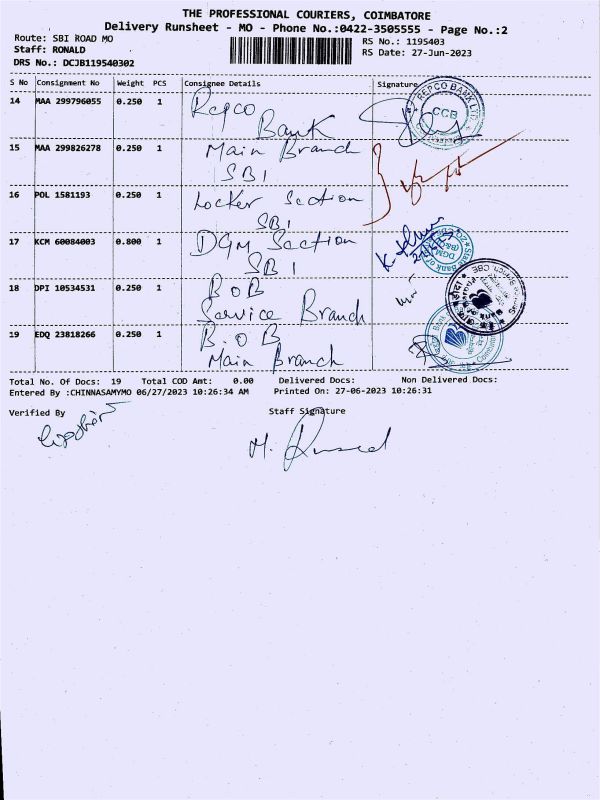 THE PROFESSIONAL COURIERS, COIMBATORE
Delivery Runsheet - MO - Phone No.:0422-3505555 - Page No.:2
Route: SBI ROAD MO
Staff: RONALD
DRS No.: DCJB119540302
RS No.: 1195403
RS Date: 27-Jun-2023
S No Consignment No Weight PCS Consignee Details Signature
14 MAA 299796055 0.250 1 Repco Bank
REPCO BANK LTD
CCB
15 MAA 299826278 0.250 1 Main Branch SBI
16 POL 1581193 0.250 1 Locker Section SBI
17 KCM 60084003 0.800 1 DGM Section SBI
State Bank of
DGM
18 DPI 10534531 0.250 1 BOB Service Branch
19 EDQ 23818266 0.250 1 B.O B Main Branch
Total No. Of Docs: 19 Total COD Amt: 0.00 Delivered Docs: Non Delivered Docs:
Entered By :CHINNASAMYMO 06/27/2023 10:26:34 AM Printed On: 27-06-2023 10:26:31
Verified By Staff Signature